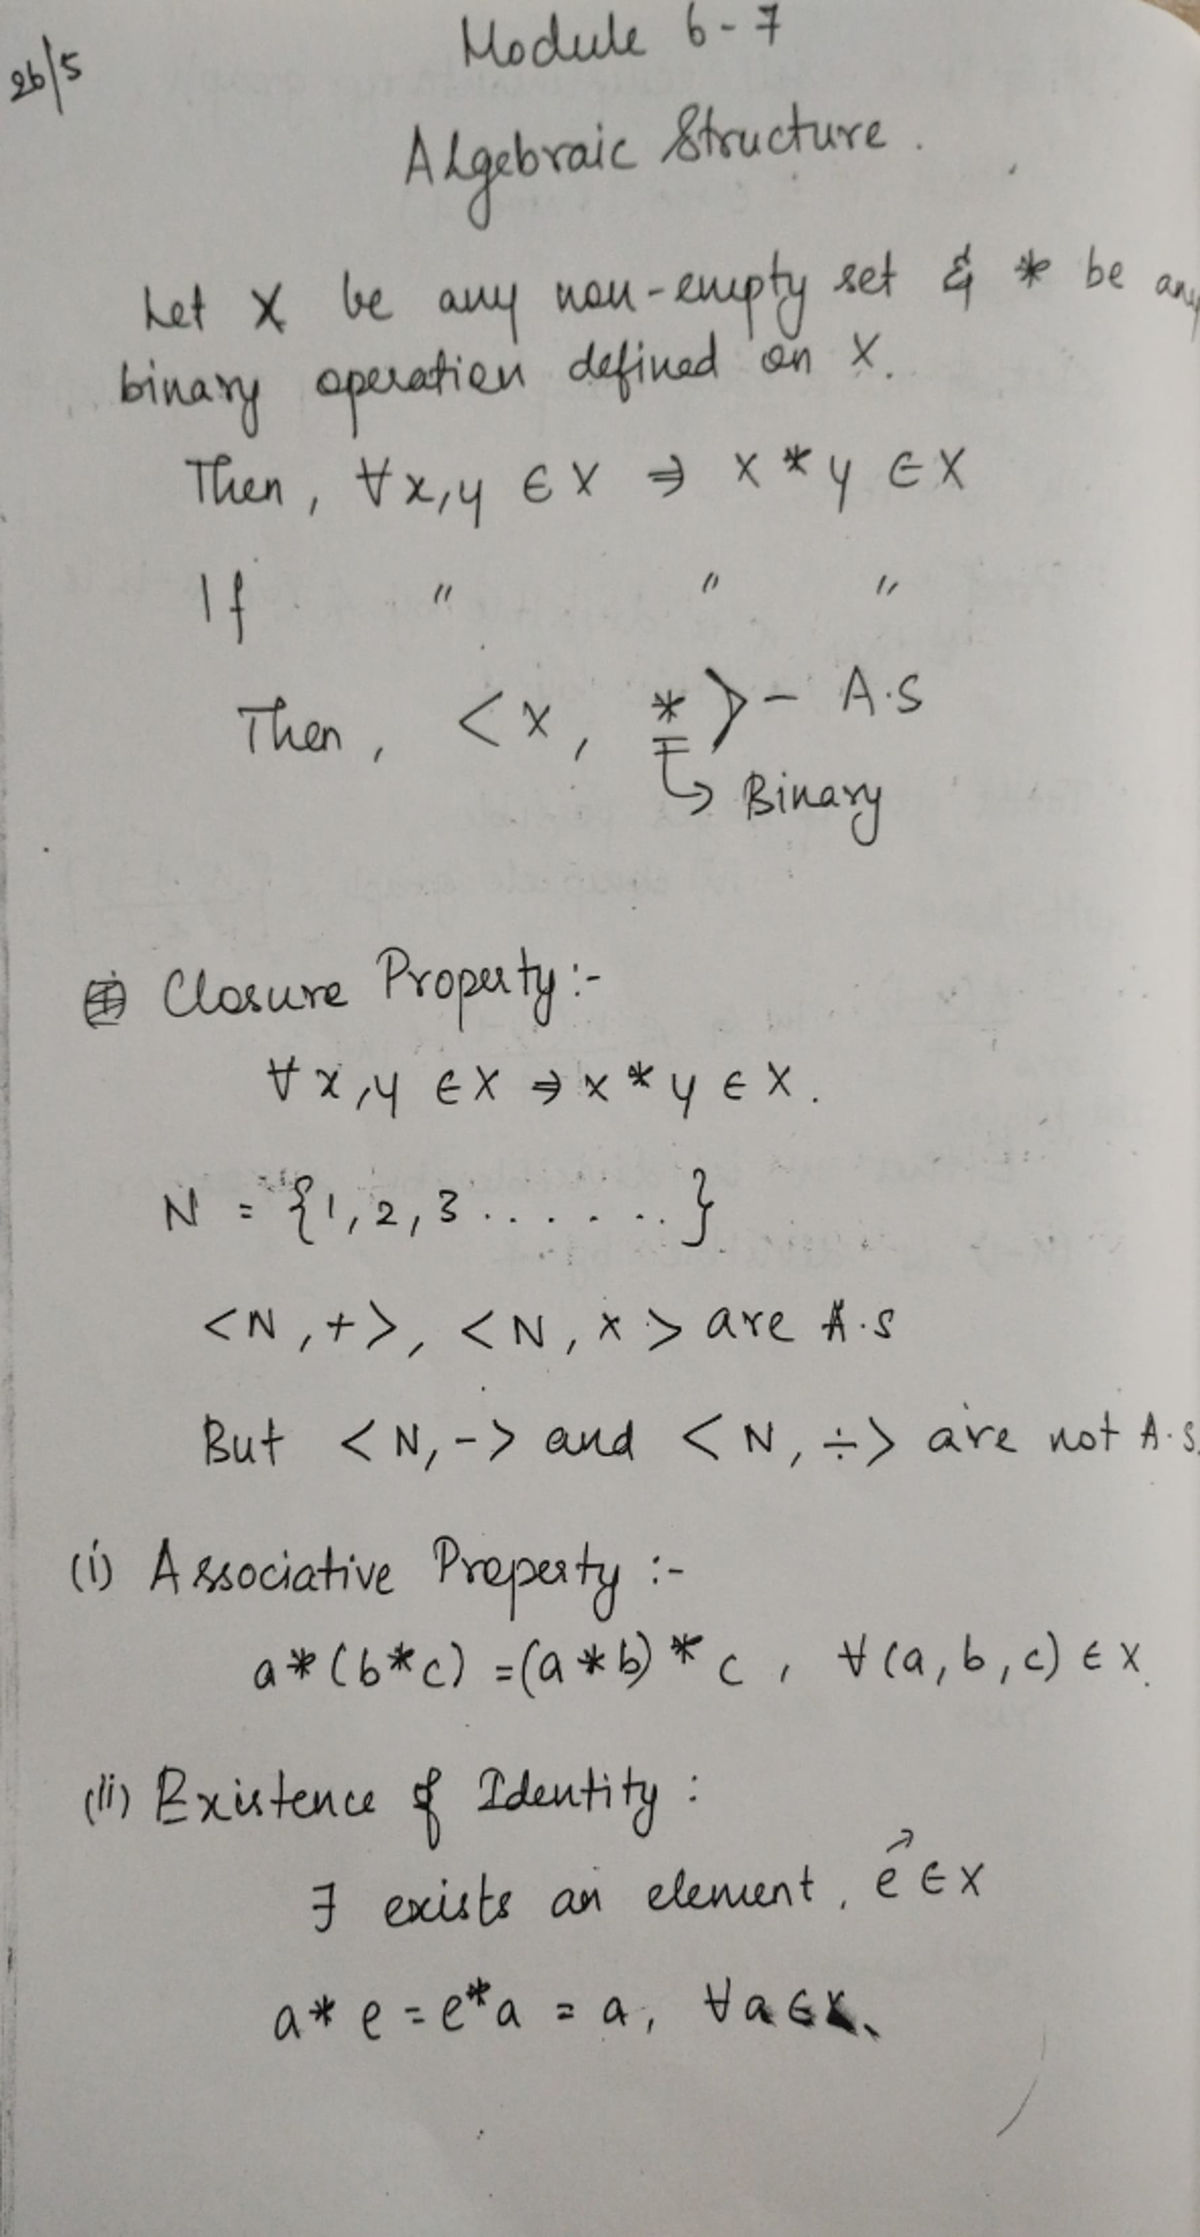 Module 6-7
26/5
Algebraic Structure.
Let X be any non-empty set & * be any
binary operation defined on X.
Then, ∀x,y ∈ X ⇒ x * y ∈ X
If " " "
Then, <X, *> - A.S
↳ Binary
Closure Property:-
∀x,y ∈ X ⇒ x * y ∈ X.
N = {1, 2, 3 . . . . . . .}
<N, +>, <N, x> are A.S
But <N, -> and <N, ÷> are not A.S.
(i) Associative Property :-
a*(b*c) = (a*b)*c, ∀(a, b, c) ∈ X.
(ii) Existence of Identity :
∃ exists an element, e ∈ X
a* e = e*a = a, ∀a ∈ X.